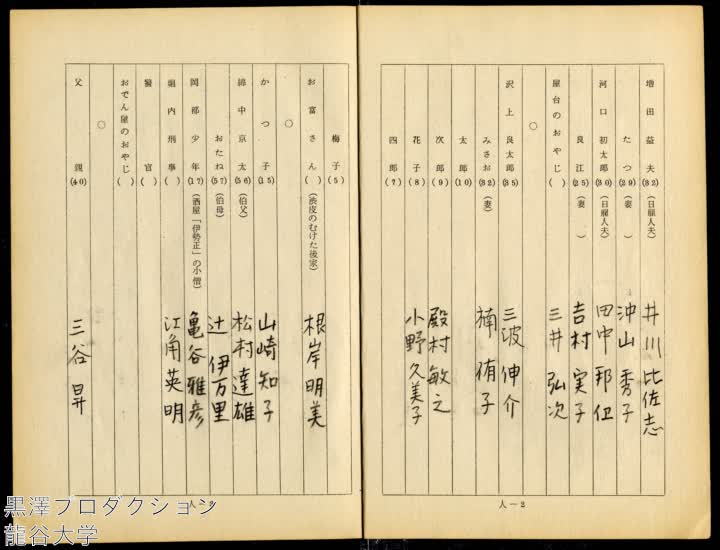 増田益夫(32)(日雇人夫) 井川比佐志
たつ(29)(妻) 沖山秀子
河口初太郎(30)(日雇人夫) 田中邦衛
良江(25)(妻) 吉村実子
屋台のおやじ( ) 三井弘次
○
沢上良太郎(35) 三波伸介
みさお(32)(妻) 楠侑子
太郎(10)
次郎(9) 殿村敏之
花子(8) 小野久美子
四郎(7)
人―2
梅子(5)
お富さん( )(渋皮のむけた後家) 根岸明美
○
かつ子(15) 山崎知子
綿中京太(56)(伯父) 松村達雄
おたね(57)(伯母) 辻伊万里
岡部少年(17)(酒屋「伊勢正」の小僧) 亀谷雅彦
堀内刑事( ) 江角英明
警官( )
おでん屋のおやじ( )
○
父親(40) 三谷昇
人―3
黒澤プロダクション
龍谷大学